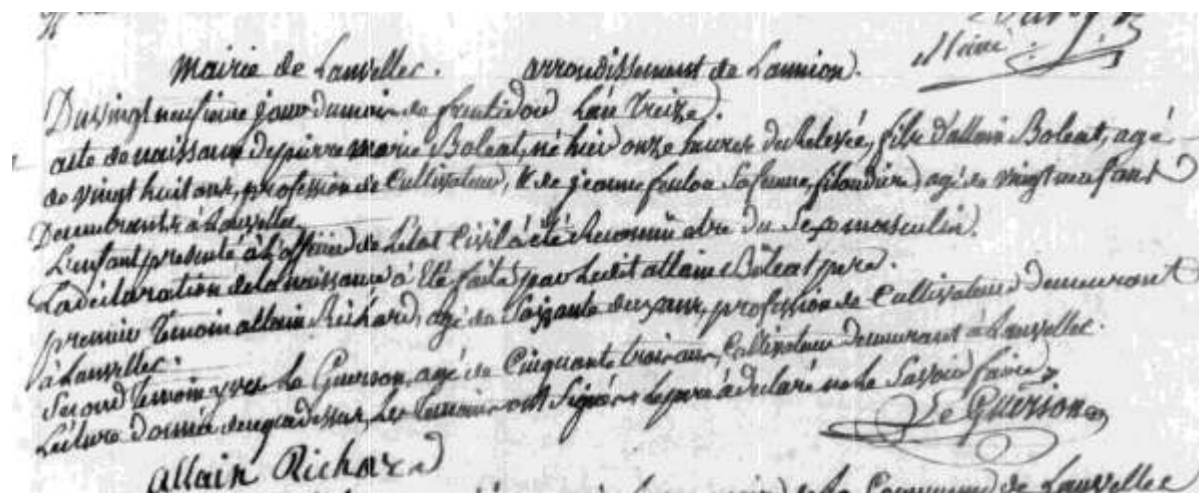 Mairie de Lanvellec. arrondissement de Lannion.
Du vingt neufieme jour du mois de fructidor l'an treize.
acte de naissance de pierre marie Boleat, né hier onze heures du Relevée, fils d'allain Boleat, agé
de vingt huit ans, profession de Cultivateur, & de jeanne feulou Sa femme, filandiere, agé de vingt neuf ans
Demeurants à Lanvellec
L'enfant presenté à L'officier de L'état Civil à été Reconnu etre du Sexe masculin.
La déclaration de la naissance à Eté faite par Ledit allain Boleat pere.
premier Temoin allain Richard, agé de Soixante deux ans, profession de Cultivateur Demeurant
à Lanvellec
Second Temoin yves Le Guerson, agé de Cinquante trois ans, Cultivateur Demeurant à Lanvellec.
Lecture donnée de ce que dessus, Les Temoins ont Signé & le pere à declaré ne le Savoir faire
Le Guerson
allain Richard
la Commune de Lanvellec